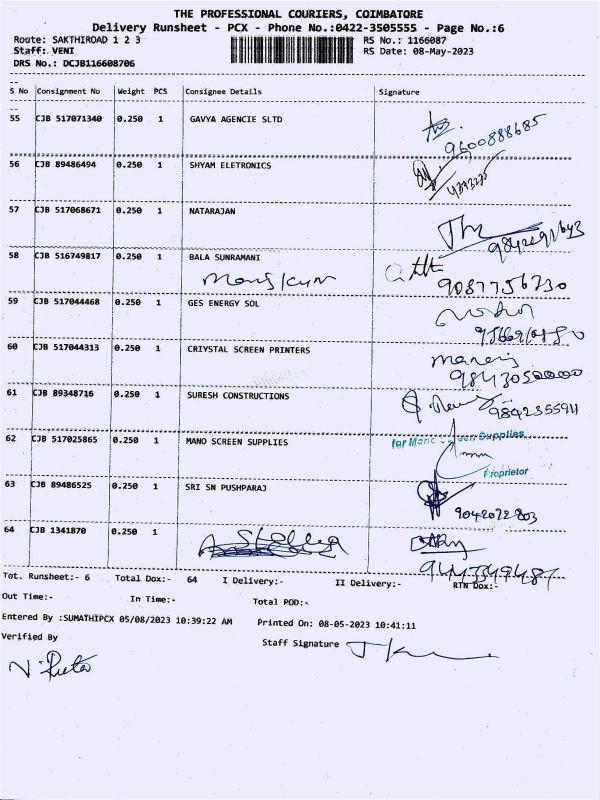 THE PROFESSIONAL COURIERS, COIMBATORE
Delivery Runsheet - PCX - Phone No.:0422-3505555 - Page No.:6
Route: SAKTHIROAD 1 2 3 RS No.: 1166087
Staff: VENI RS Date: 08-May-2023
DRS No.: DCJB116608706
S No Consignment No Weight PCS Consignee Details Signature
55 CJB 517071340 0.250 1 GAVYA AGENCIE SLTD
9600888685
56 CJB 89486494 0.250 1 SHYAM ELETRONICS
57 CJB 517068671 0.250 1 NATARAJAN
58 CJB 516749817 0.250 1 BALA SUNRAMANI
9087756730
59 CJB 517044468 0.250 1 GES ENERGY SOL
60 CJB 517044313 0.250 1 CRIYSTAL SCREEN PRINTERS
61 CJB 89348716 0.250 1 SURESH CONSTRUCTIONS
9842355911
62 CJB 517025865 0.250 1 MANO SCREEN SUPPLIES
for Mano Screen Supplies
Proprietor
63 CJB 89486525 0.250 1 SRI SN PUSHPARAJ
9042072803
64 CJB 1341870 0.250 1
Stella
Tot. Runsheet:- 6 Total Dox:- 64 I Delivery:- II Delivery:- RTN Dox:-
Out Time:- In Time:- Total POD:-
Entered By :SUMATHIPCX 05/08/2023 10:39:22 AM Printed On: 08-05-2023 10:41:11
Verified By Staff Signature